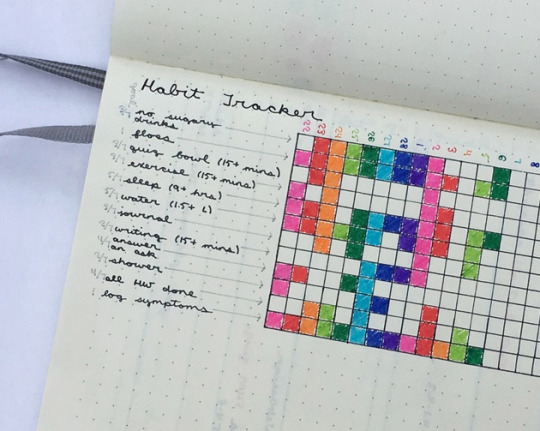 Habit Tracker
22 23 24 25 26 27 28 1 2 3 4 5 6 7 8
no sugary
drinks
floss
quiz bowl (15+ mins)
exercise (15+ mins)
sleep (9+ hrs)
water (1.5+ L)
journal
writing (15+ mins)
answer
an ask
shower
all HW done
log symptoms